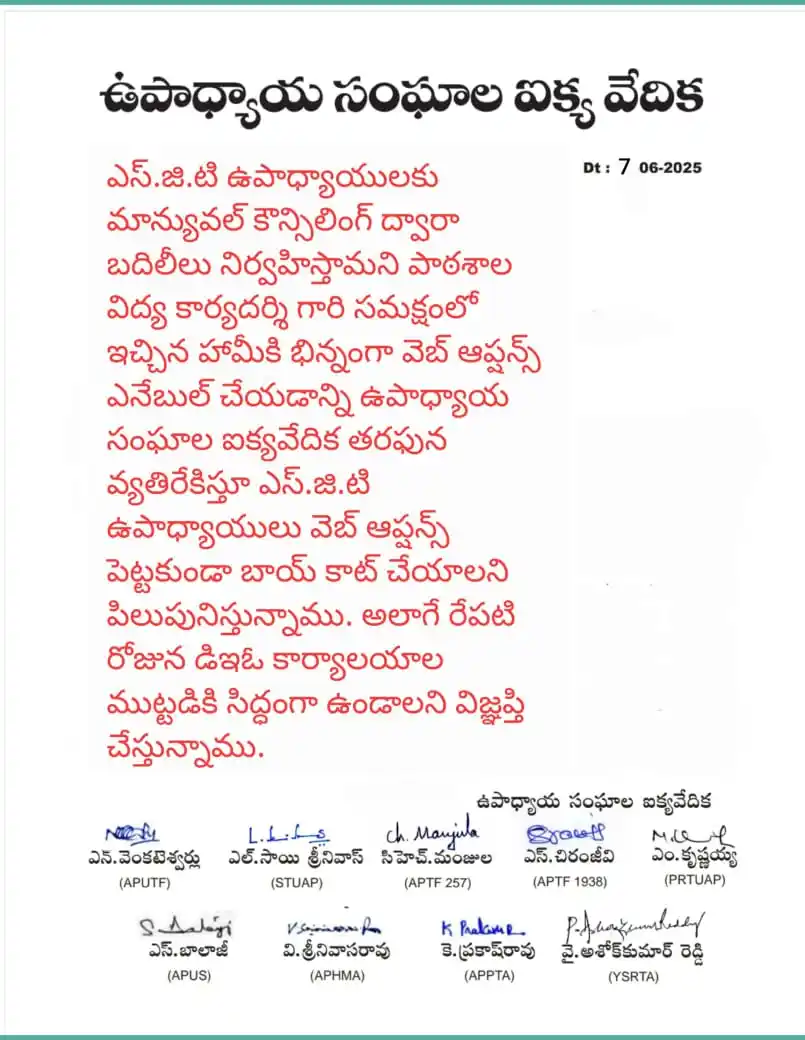 ఉపాధ్యాయ సంఘాల ఐక్య వేదిక
Dt : 7 06-2025
ఎస్.జి.టి ఉపాధ్యాయులకు
మాన్యువల్ కౌన్సిలింగ్ ద్వారా
బదిలీలు నిర్వహిస్తామని పాఠశాల
విద్య కార్యదర్శి గారి సమక్షంలో
ఇచ్చిన హామీకి భిన్నంగా వెబ్ ఆప్షన్స్
ఎనేబుల్ చేయడాన్ని ఉపాధ్యాయ
సంఘాల ఐక్యవేదిక తరఫున
వ్యతిరేకిస్తూ ఎస్.జి.టి
ఉపాధ్యాయులు వెబ్ ఆప్షన్స్
పెట్టకుండా బాయ్ కాట్ చేయాలని
పిలుపునిస్తున్నాము. అలాగే రేపటి
రోజున డిఇఓ కార్యాలయాల
ముట్టడికి సిద్ధంగా ఉండాలని విజ్ఞప్తి
చేస్తున్నాము.
ఉపాధ్యాయ సంఘాల ఐక్యవేదిక
Ch. Manjula
ఎన్.వెంకటేశ్వర్లు ఎల్.సాయి శ్రీనివాస్ సిహెచ్.మంజుల ఎస్.చిరంజీవి ఎం.కృష్ణయ్య
(APUTF) (STUAP) (APTF 257) (APTF 1938) (PRTUAP)
S Balaji K Prakash
ఎస్.బాలాజీ వి.శ్రీనివాసరావు కె.ప్రకాష్‌రావు వై.అశోక్‌కుమార్ రెడ్డి
(APUS) (APHMA) (APPTA) (YSRTA)